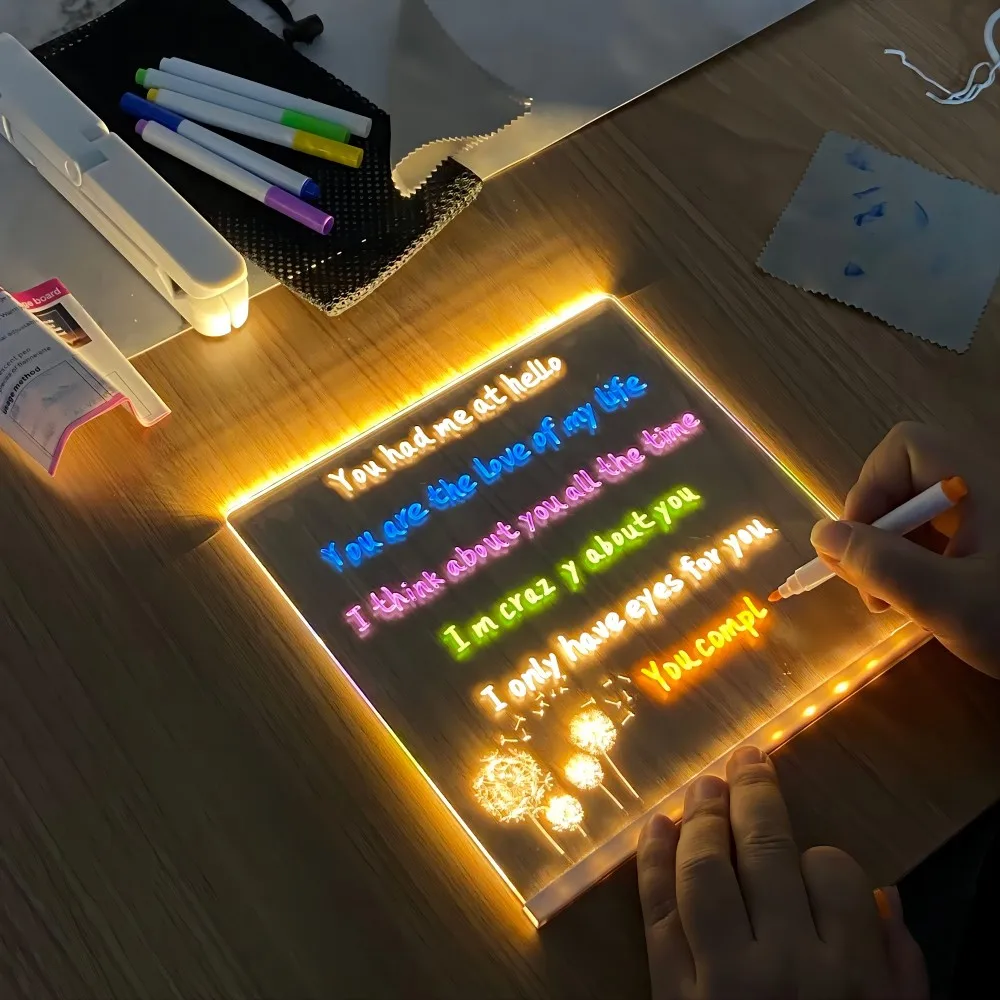 You had me at hello
You are the love of my life
I think about you all the time
I m craz y about you
I only have eyes for you.
You compl
ge board
usage method